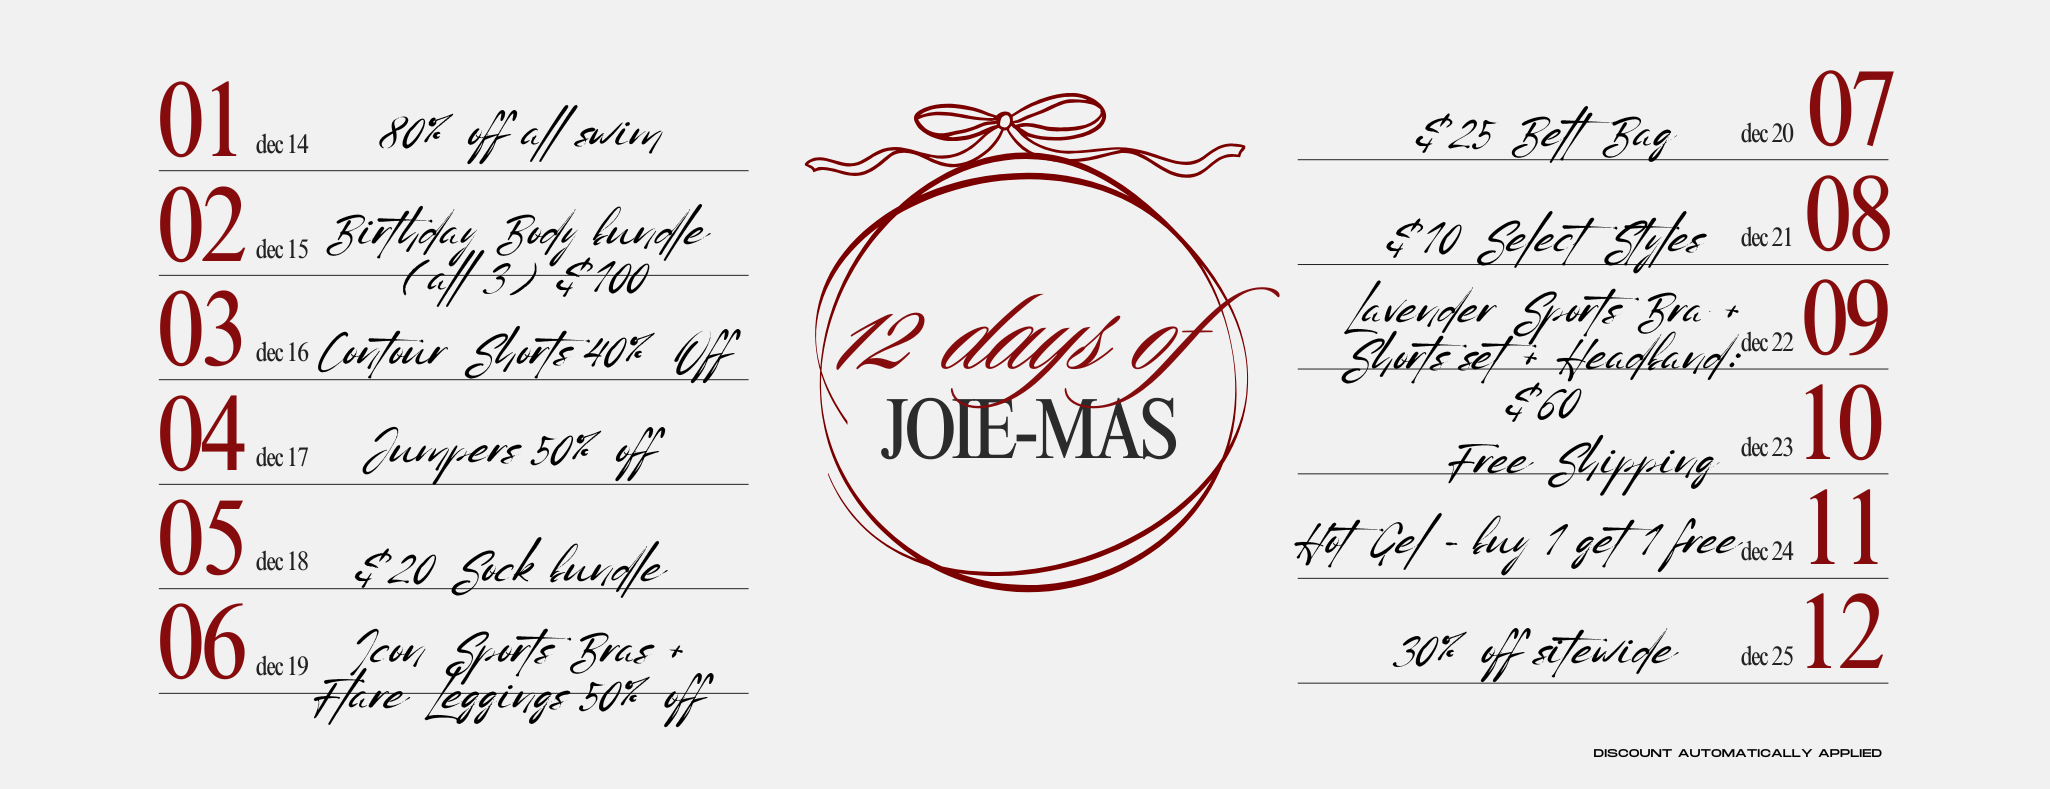 01 dec 14 80% off all swim
02 dec 15 Birthday Body bundle
(all 3) $100
03 dec 16 Contour Shorts 40% Off
04 dec 17 Jumpers 50% off
05 dec 18 $20 Sock bundle
06 dec 19 Icon Sports Bras +
Flare Leggings 50% off
12 days of
JOIE-MAS
$25 Belt Bag dec 20 07
$10 Select Styles dec 21 08
Lavender Sports Bra +
Shorts set + Headband: dec 22 09
$60
Free Shipping dec 23 10
Hot Gel - buy 1 get 1 free dec 24 11
30% off sitewide dec 25 12
DISCOUNT AUTOMATICALLY APPLIED